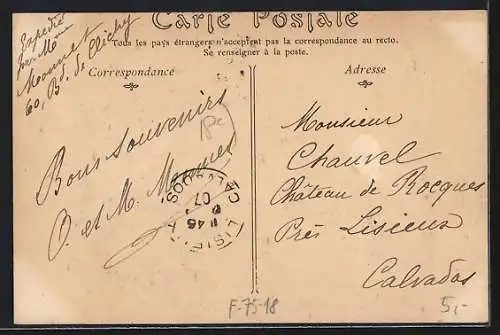 Carte Postale
Tous les pays étrangers n'acceptent pas la correspondance au recto.
Se renseigner à la poste.
Correspondance
Adresse
Expédié
par M
Monnet
60, Bd. de Clichy
Bons Souvenirs
O. et M. Monnet
LISIEUX
CALVADOS
11 45
07
Monsieur
Chauvel
Château de Rocques
Près Lisieux
Calvados
F-75-18
5,-